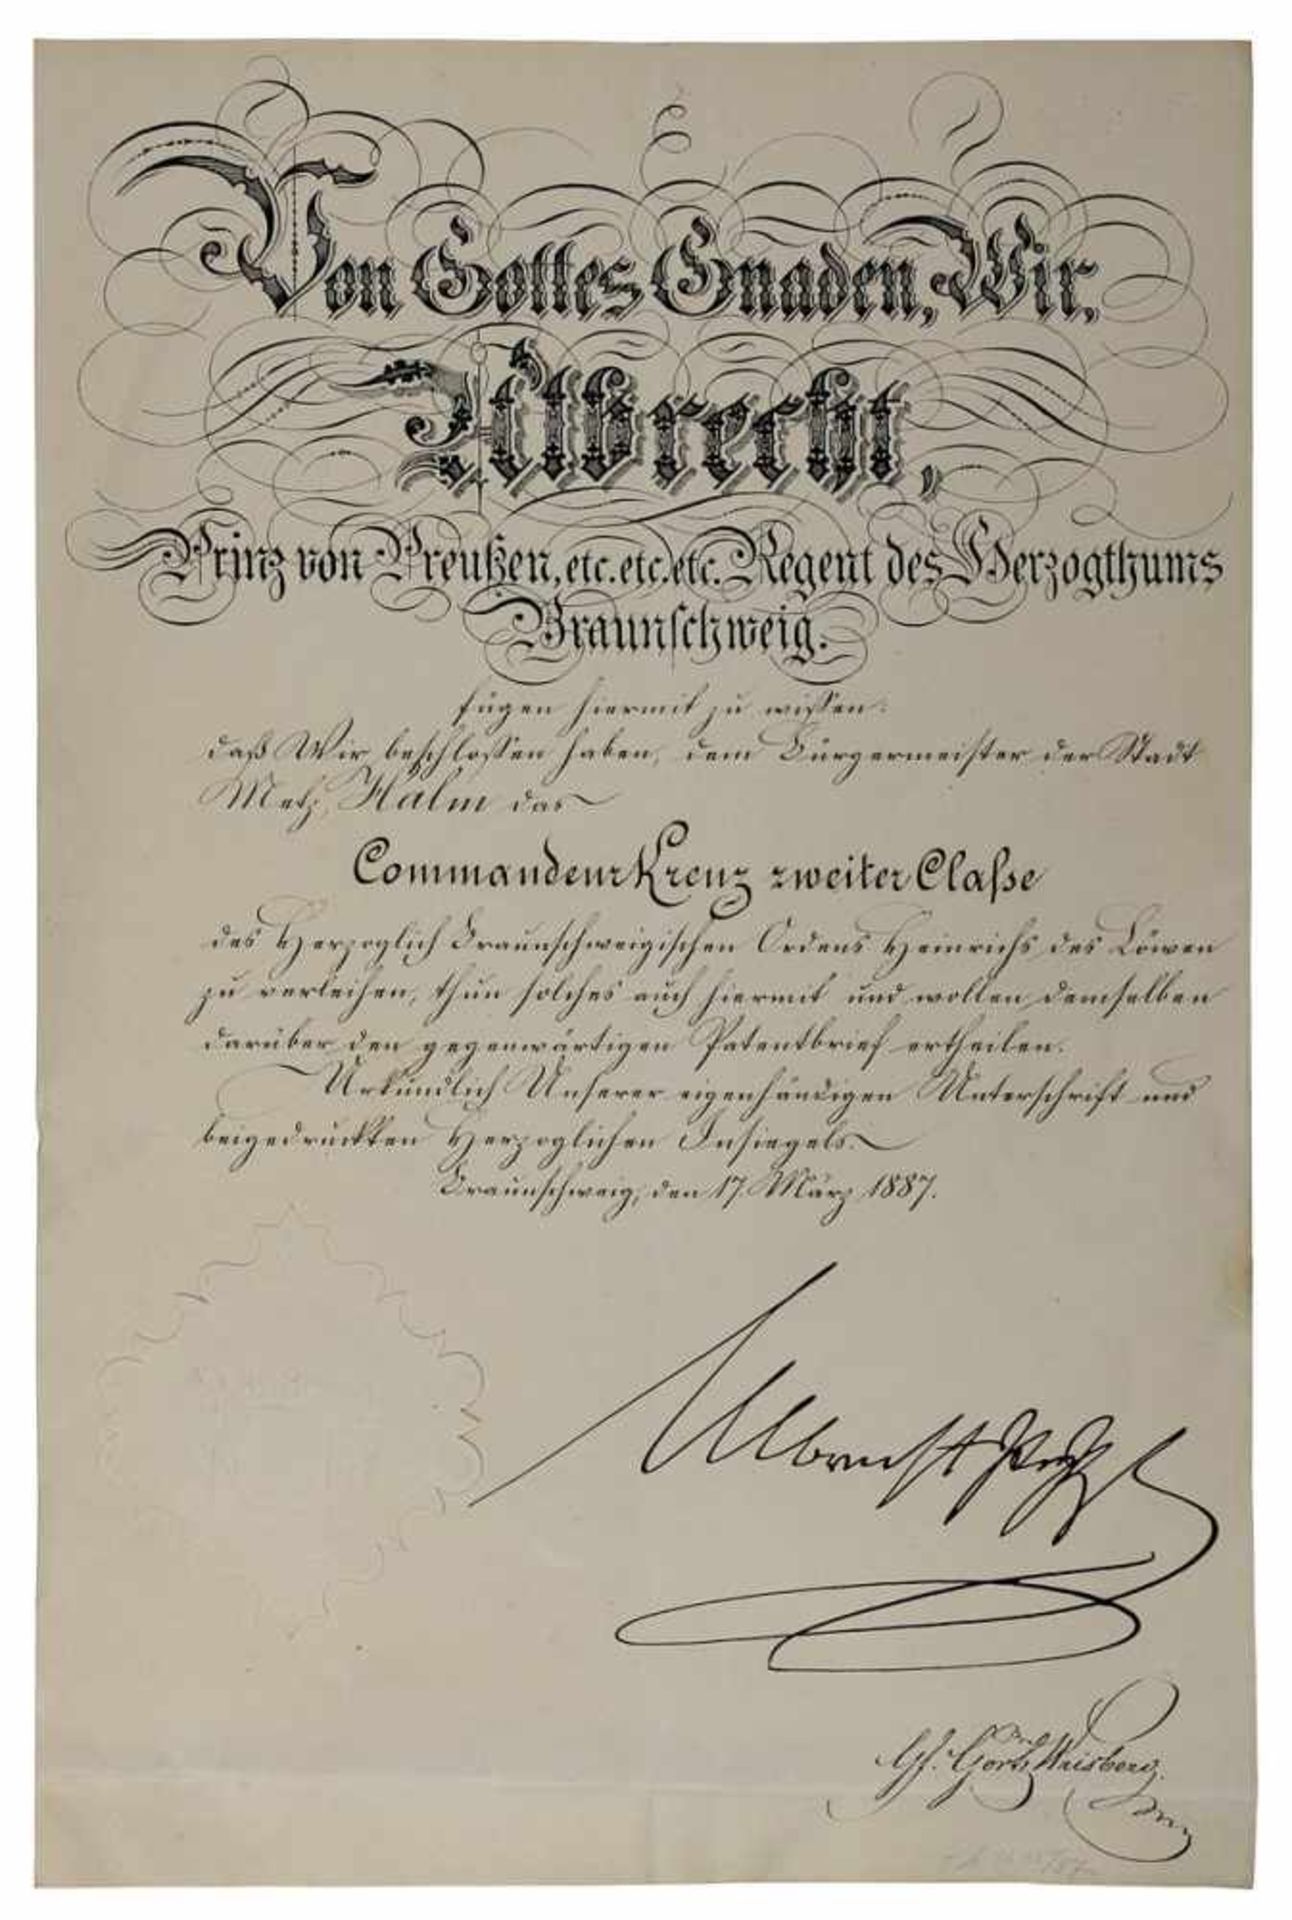 Von Gottes Gnaden, Wir,
Albrecht,
Prinz von Preußen, etc. etc. etc. Regent des Herzogthums
Braunschweig.
fügen hiermit zu wissen:
daß Wir beschlossen haben, dem Bürgermeister der Stadt
Metz, Halm das
Commandeur Kreuz zweiter Claße
des Herzoglich Braunschweigischen Ordens Heinrichs des Löwen
zu verleihen, thun solches auch hiermit und wollen demselben
darüber den gegenwärtigen Patentbrief ertheilen.
Urkundlich Unserer eigenhändigen Unterschrift und
beigedruckten Herzoglichen Insiegels.
Braunschweig, den 17. März 1887.
Albrecht PrzPr
Gf. Görtz Wrisberg.